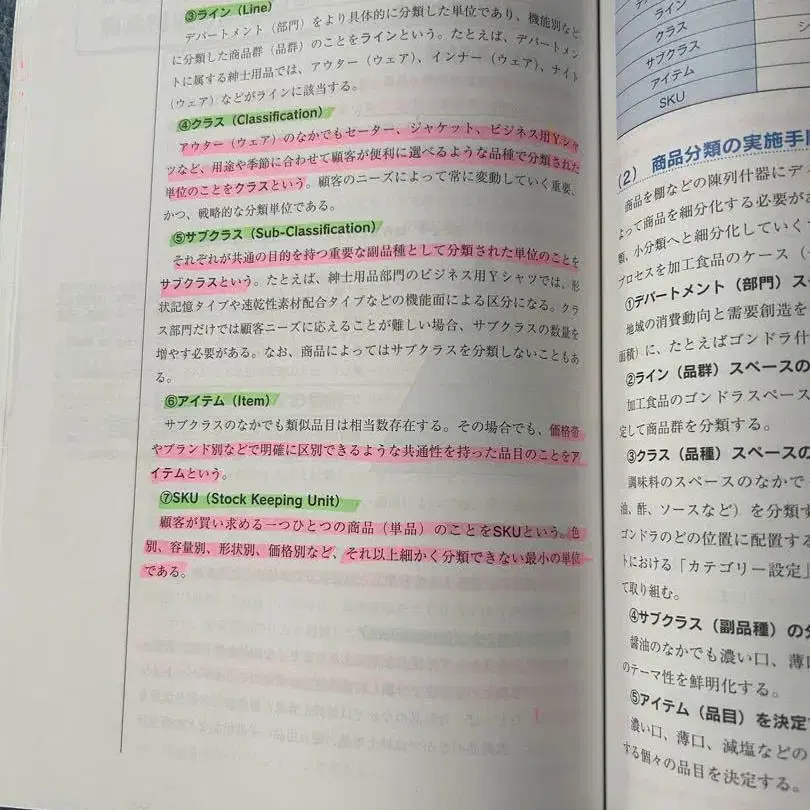 ③ライン（Line）
デパートメント（部門）をより具体的に分類した単位であり、機能別など
に分類した商品群（品群）のことをラインという。たとえば、デパートメン
トに属する紳士用品では、アウター（ウェア）、インナー（ウェア）、ナイト
（ウェア）などがラインに該当する。
④クラス（Classification）
アウター（ウェア）のなかでもセーター、ジャケット、ビジネス用Yシャ
ツなど、用途や季節に合わせて顧客が便利に選べるような品種で分類された
単位のことをクラスという。顧客のニーズによって常に変動していく重要、
かつ、戦略的な分類単位である。
⑤サブクラス（Sub-Classification）
それぞれが共通の目的を持つ重要な副品種として分類された単位のことを
サブクラスという。たとえば、紳士用品部門のビジネス用Yシャツでは、形
状記憶タイプや速乾性素材配合タイプなどの機能面による区分になる。クラ
ス部門だけでは顧客ニーズに応えることが難しい場合、サブクラスの数量を
増やす必要がある。なお、商品によってはサブクラスを分類しないこともあ
る。
⑥アイテム（Item）
サブクラスのなかでも類似品目は相当数存在する。その場合でも、価格帯
やブランド別などで明確に区別できるような共通性を持った品目のことをア
イテムという。
⑦SKU（Stock Keeping Unit）
顧客が買い求める一つひとつの商品（単品）のことをSKUという。色
別、容量別、形状別、価格別など、それ以上細かく分類できない最小の単位
である。
ライン
クラス
サブクラス
アイテム
SKU
（2） 商品分類の実施手
商品を棚などの陳列什器にデ
よって商品を細分化する必要が
類、小分類へと細分化していく
プロセスを加工食品のケース（
①デパートメント（部門）ス
地域の消費動向と需要創造を
面積）に、たとえばゴンドラ什
②ライン（品群）スペースの
加工食品のゴンドラスペース
定して商品群を分類する。
③クラス（品種）スペースの
調味料のスペースのなかで
油、酢、ソースなど）を分類す
ゴンドラのどの位置に配置する
トにおける「カテゴリー設定」
て取り組む。
④サブクラス（副品種）の
醤油のなかでも濃い口、薄
のテーマ性を鮮明化する。
⑤アイテム（品目）を決定
濃い口、薄口、減塩などの
する個々の品目を決定する。